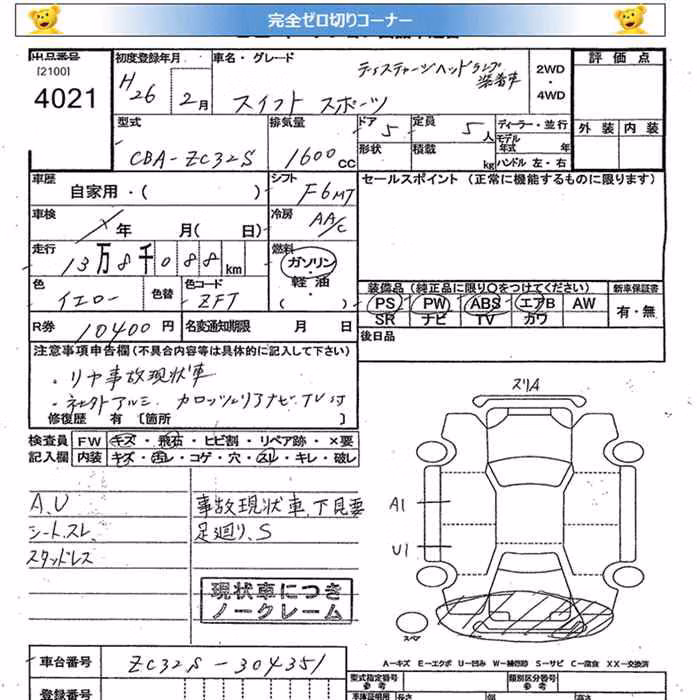 完全ゼロ切りコーナー
出品番号
[2100]
4021
初度登録年月
H26年 2月
車名・グレード
ディスチャージヘッドランプ
装着車
スイフト スポーツ
2WD
・
4WD
評価点
外装 内装
型式
CBA-ZC32S
排気量
1600cc
ドア 5
定員 5人
形状
積載 kg
ディーラー・並行
モデル年式 年
ハンドル 左・右
車歴
自家用・( )
シフト
F6MT
セールスポイント (正常に機能するものに限ります)
車検
年 月( 日)
冷房
AA/C
走行
13万8千088km
燃料
ガソリン・
軽油・
( )
色
イエロー
色替
色コード
ZFT
装備品(純正品に限り○をつけてください)
PS PW ABS エアB AW
SR ナビ TV カワ
新車保証書
有・無
R券 10400円
名変通知期限 月 日
後日品
注意事項申告欄(不具合内容等は具体的に記入して下さい)
・リヤ事故現状車
・社外アルミ カロッツェリアナビ TV付
修復歴 有 〔箇所 〕
検査員 FW キズ・飛石・ヒビ割・リペア跡・×要
記入欄 内装 キズ・汚レ・コゲ・穴・スレ・キレ・破レ
A.U
シート.スレ
スタッドレス
事故現状車、下見要
足廻り、S
現状車につき
ノークレーム
スリA
A1
U1
スペア
A-キズ E-エクボ U-凹み W-補修跡 S-サビ C-腐食 XX-交換済
車台番号
ZC32S-304351
型式指定番号
参考
類別区分番号
参考
登録番号
車庫証明用
参考
長さ
幅
高さ